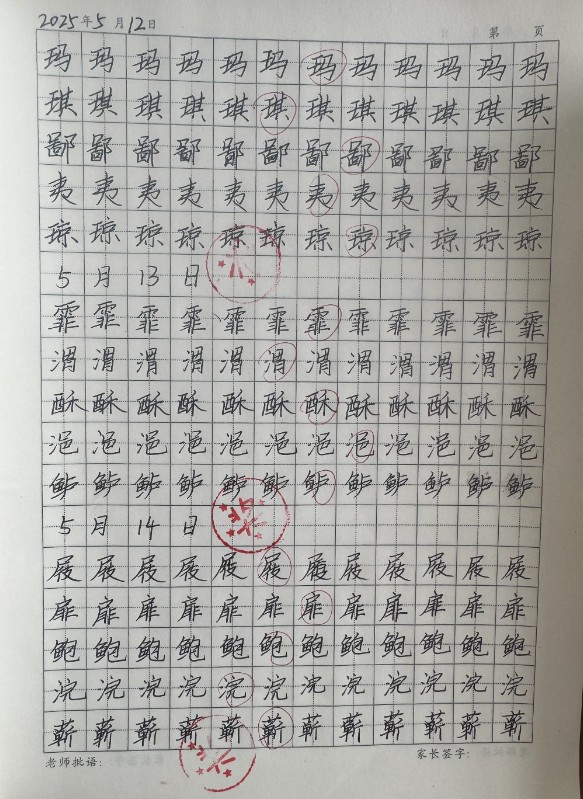 2025年5月12日 第 页
玛玛玛玛玛玛玛玛玛玛玛玛
琪琪琪琪琪琪琪琪琪琪琪琪
鄙鄙鄙鄙鄙鄙鄙鄙鄙鄙鄙鄙
夷夷夷夷夷夷夷夷夷夷夷夷
琼琼琼琼琼琼琼琼琼琼琼琼
5月13日
霏霏霏霏霏霏霏霏霏霏霏霏
渭渭渭渭渭渭渭渭渭渭渭渭
酥酥酥酥酥酥酥酥酥酥酥酥
浥浥浥浥浥浥浥浥浥浥浥浥
鲈鲈鲈鲈鲈鲈鲈鲈鲈鲈鲈鲈
5月14日
屐屐屐屐屐屐屐屐屐屐屐屐
扉扉扉扉扉扉扉扉扉扉扉扉
鲍鲍鲍鲍鲍鲍鲍鲍鲍鲍鲍鲍
浣浣浣浣浣浣浣浣浣浣浣浣
蕲蕲蕲蕲蕲蕲蕲蕲蕲蕲蕲蕲
老师批语: 家长签字: